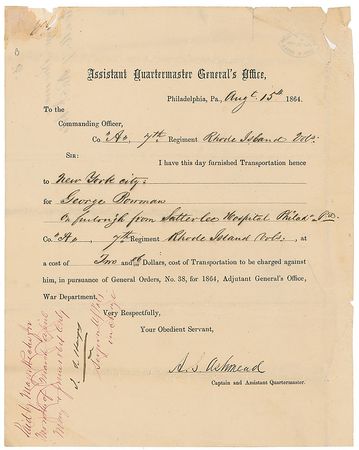 Assistant Quartermaster General's Office,
Philadelphia, Pa., Augt. 15th 1864.
To the
Commanding Officer,
Co "A", 7th Regiment Rhode Island Vols.
SIR:
I have this day furnished Transportation hence
to New York city.
for George Bowman
On furlough from Satterlee Hospital Philada Pa.
Co. "A", 7th Regiment Rhode Island Vols., at
a cost of Two and Dollars, cost of Transportation to be charged against
him, in pursuance of General Orders, No. 38, for 1864, Adjutant General's Office,
War Department,
Very Respectfully,
Your Obedient Servant,
A. S. Ashmead
Captain and Assistant Quartermaster.